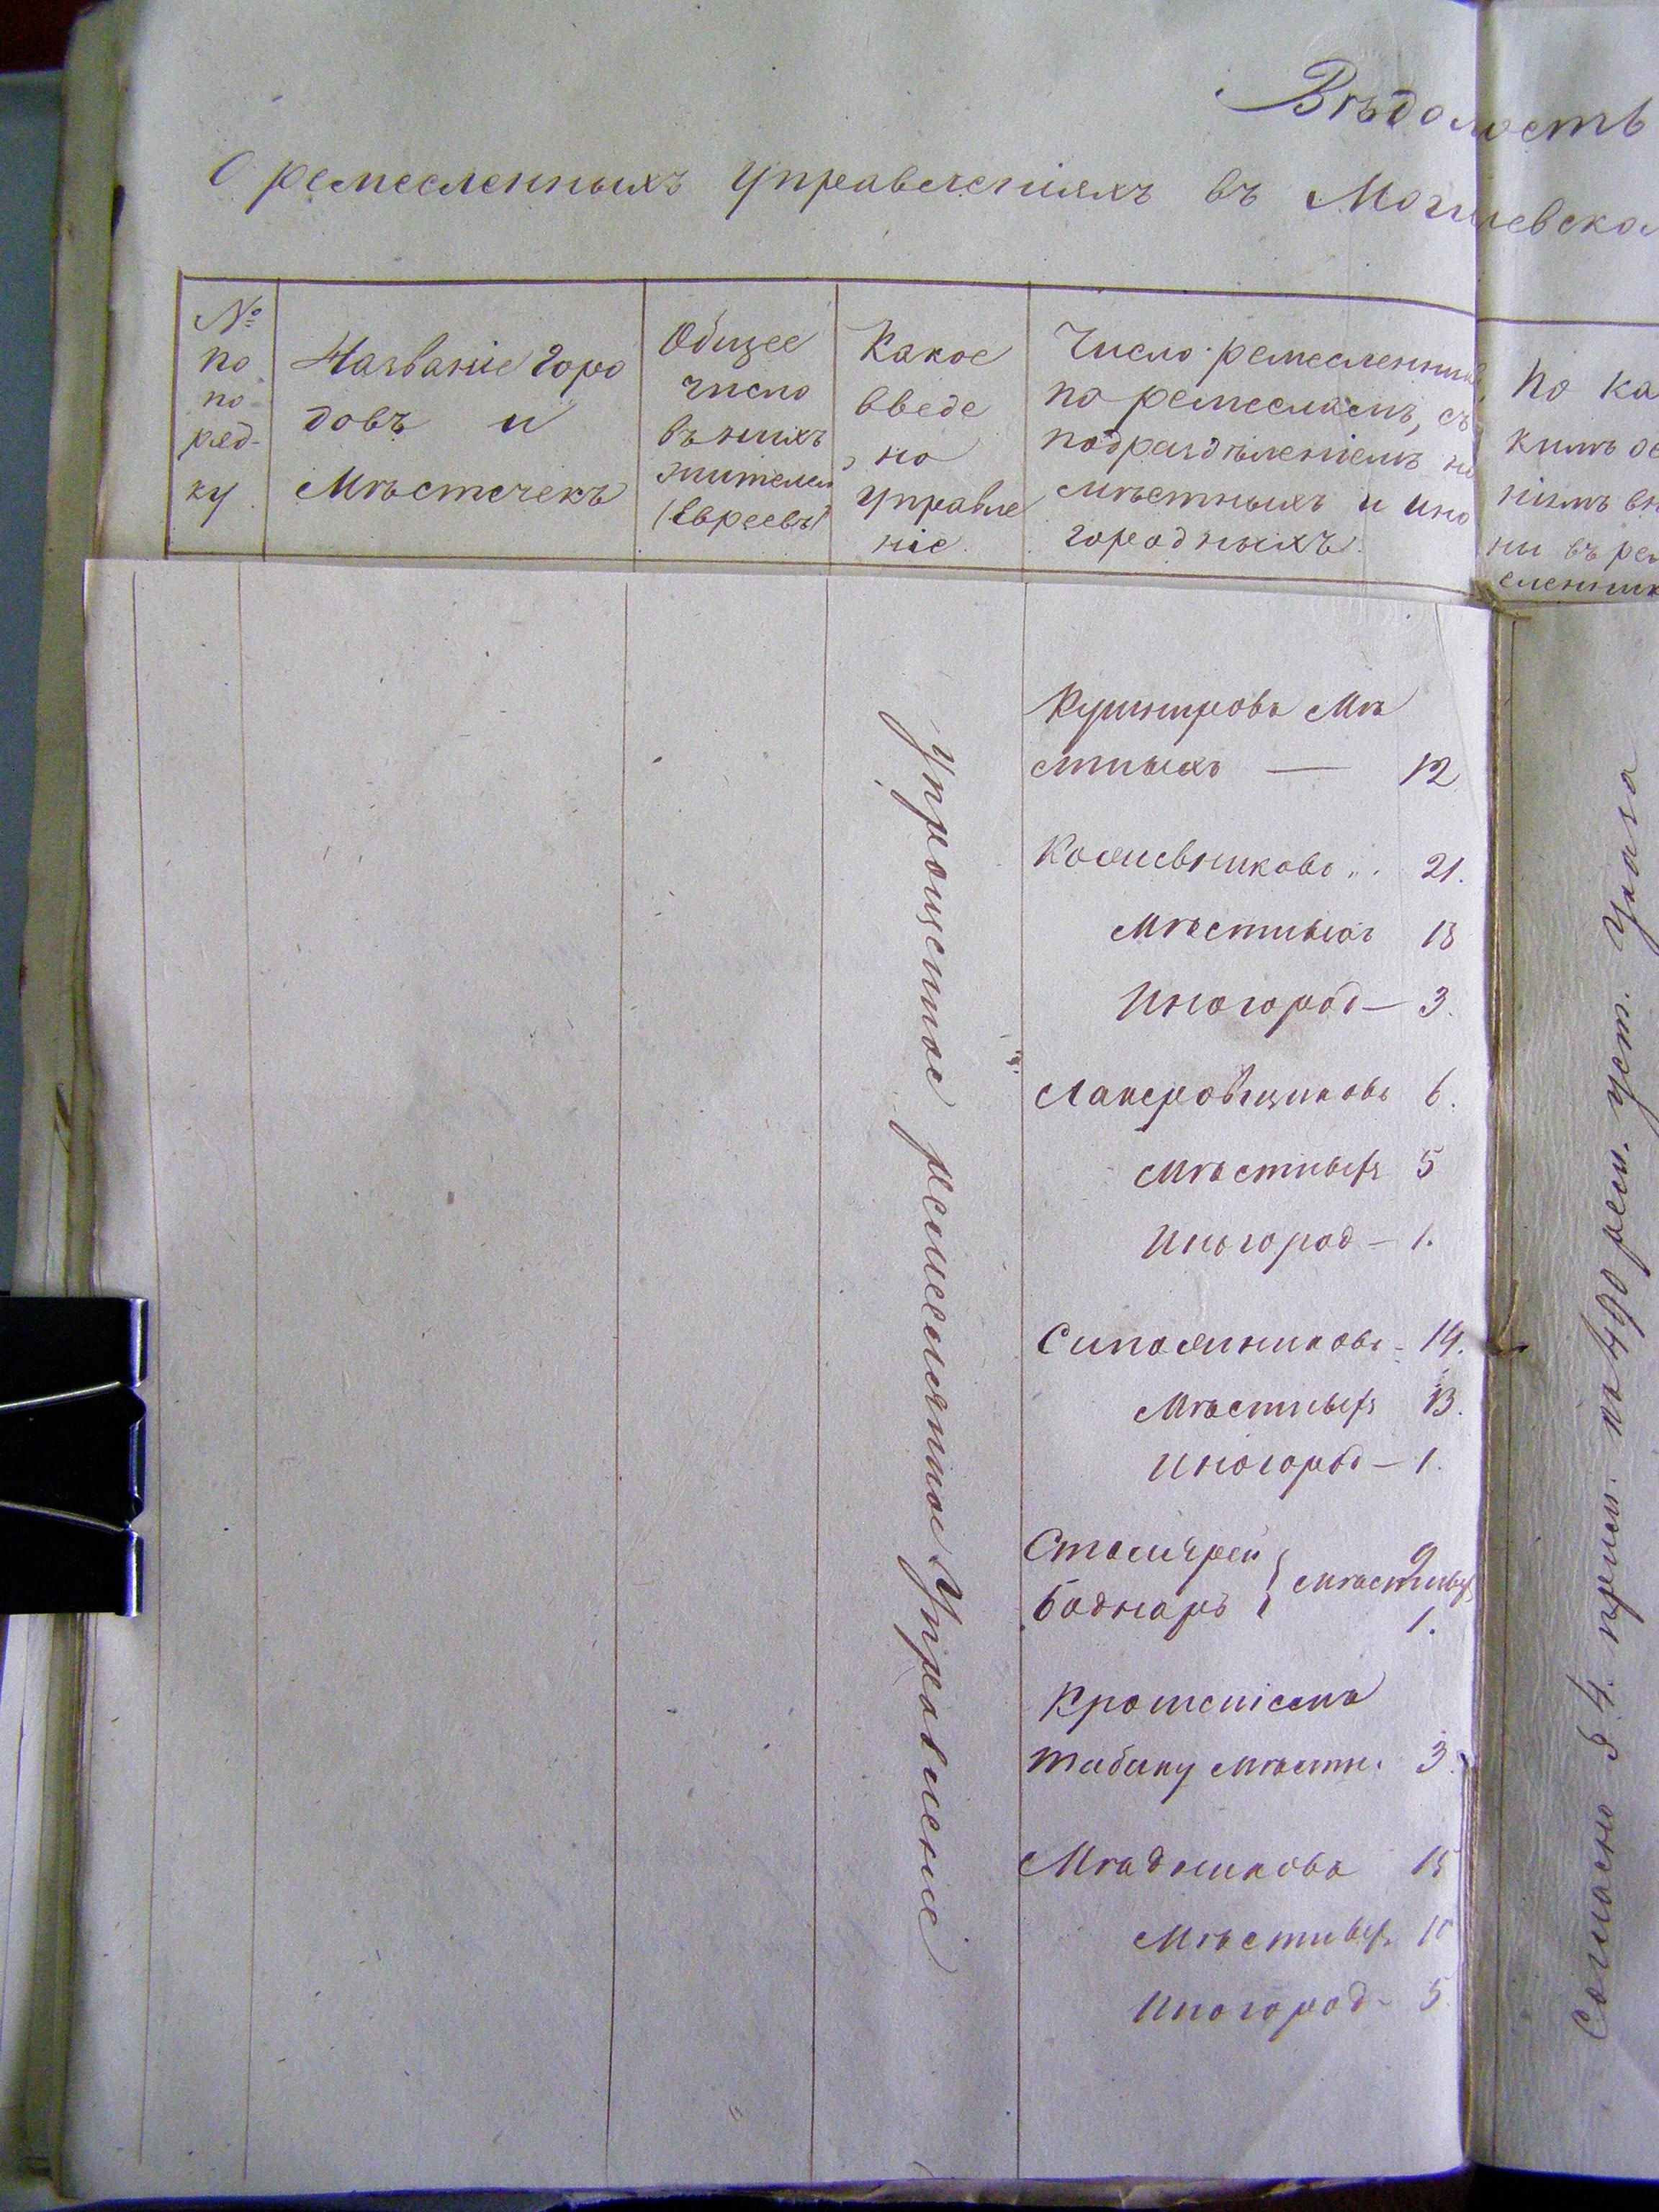 Вѣдомость
О ремесленныхъ управленіяхъ въ Могилевско
№
по
по
ряд-
ку
Названіе горо
довъ и
Мѣстечекъ
Общее
число
въ нихъ
жителей
(Евреевъ)
Какое
введе
но
управле
ніе.
Число ремесленник
по ремесламъ, съ
подраздѣленіемъ на
мѣстныхъ и ино
городныхъ.
По ка
кимъ ос
ніямъ вн
ны въ рем
сленник
Упрощенное ремесленное Управленіе
Кушнировъ Мѣ
стныхъ — 12
Кожевниковъ 21.
Мѣстныхъ 18
Иногород — 3.
Лакеровщиковъ 6.
Мѣстныхъ 5
Иногород — 1.
Сапожниковъ - 14.
Мѣстныхъ 13.
Иногород — 1.
Столярей 9
мѣстныхъ
Боднаръ 1.
Крошеніемъ
табаку мѣстн. 3.
Мѣдниковъ 15
Мѣстныхъ 10
Иногород - 5.
Согласно § 4. прим. къ 490 рем. уст. Указа